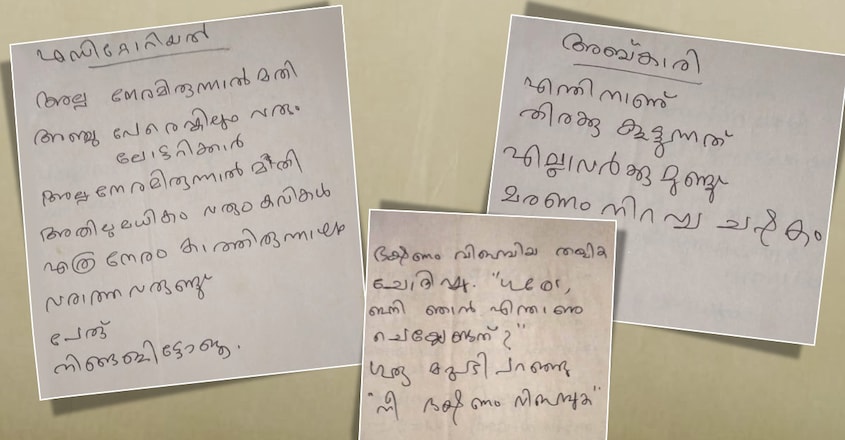 എഡിറ്റോറിയൽ
അല്പ നേരമിരുന്നാൽ മതി
അഞ്ചു പേരെങ്കിലും വരും
ലോട്ടറിക്കാർ
അല്പനേരമിരുന്നാൽ മതി
അതിലുമധികം വരും കവികൾ
എത്ര നേരം കാത്തിരുന്നാലും
വരാത്തവരുണ്ട്
പേര്
നിങ്ങളിട്ടോളൂ.
അബ്കാരി
എന്തിനാണ്
തിരക്കു കൂട്ടുന്നത്
എല്ലാവർക്കുമുണ്ട്
മരണം നിറച്ച ചഷകം
ഭക്ഷണം വിളമ്പിയ
ചോദിച്ചു. "ഗുരോ,
ഇനി ഞാൻ എന്താണ്
ചെയ്യേണ്ടത്?"
ഗുരു മറുപടി പറഞ്ഞു
"നീ ഭക്ഷണം വിളമ്പുക"